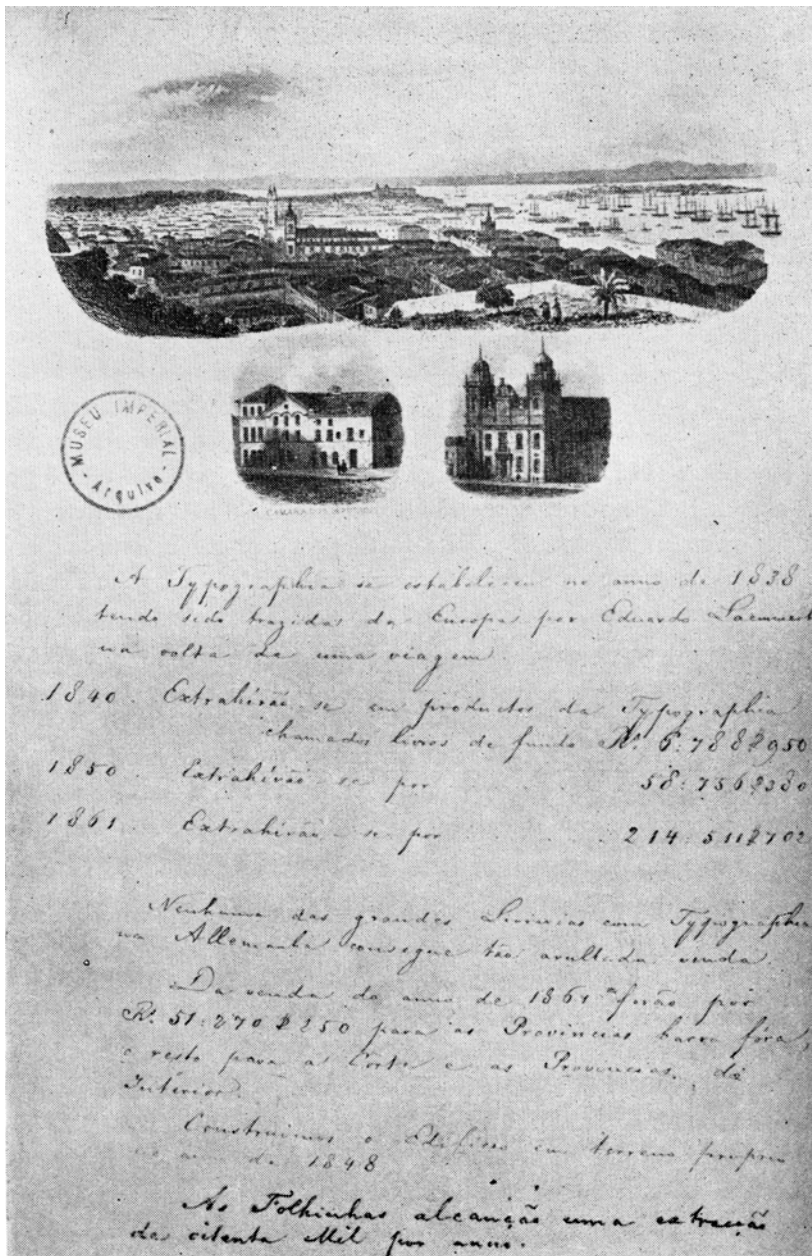 MUSEU IMPERIAL
- Arquivo -
A Typographia se estabeleceu no anno de 1838
tendo sido trazidas da Europa por Eduardo Laemmert
na volta de uma viagem.
1840. Extrahirão-se em productos da Typographia
chamados livros de fundo Rs. 6:788$950
1850. Extrahirão-se por 58:756$380
1861. Extrahirão-se por 214:511$702
Nenhuma das grandes Livrarias com Typographia
na Allemanha consegue tão avultada venda.
Da venda do anno de 1861 forão por
Rs. 51:270$250 para as Provincias barra fóra,
o resto para a Corte e as Provincias do
Interior.
Construimos o Edificio em terreno proprio
no anno de 1848
As Folhinhas alcanção uma extracção
de oitenta Mil por anno.